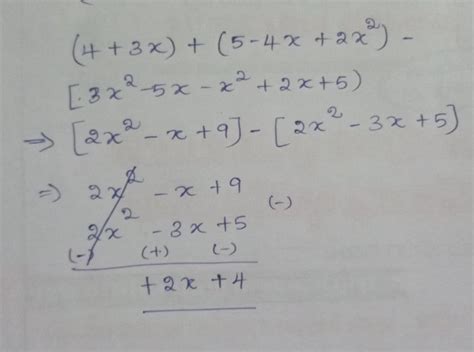 (4 + 3x) + (5 - 4x + 2x²) -
[3x² - 5x - x² + 2x + 5)
⇒ [2x² - x + 9] - [2x² - 3x + 5]
⇒) 2x² - x + 9
2x² - 3x + 5 (-)
(-) (+) (-)
+ 2x + 4